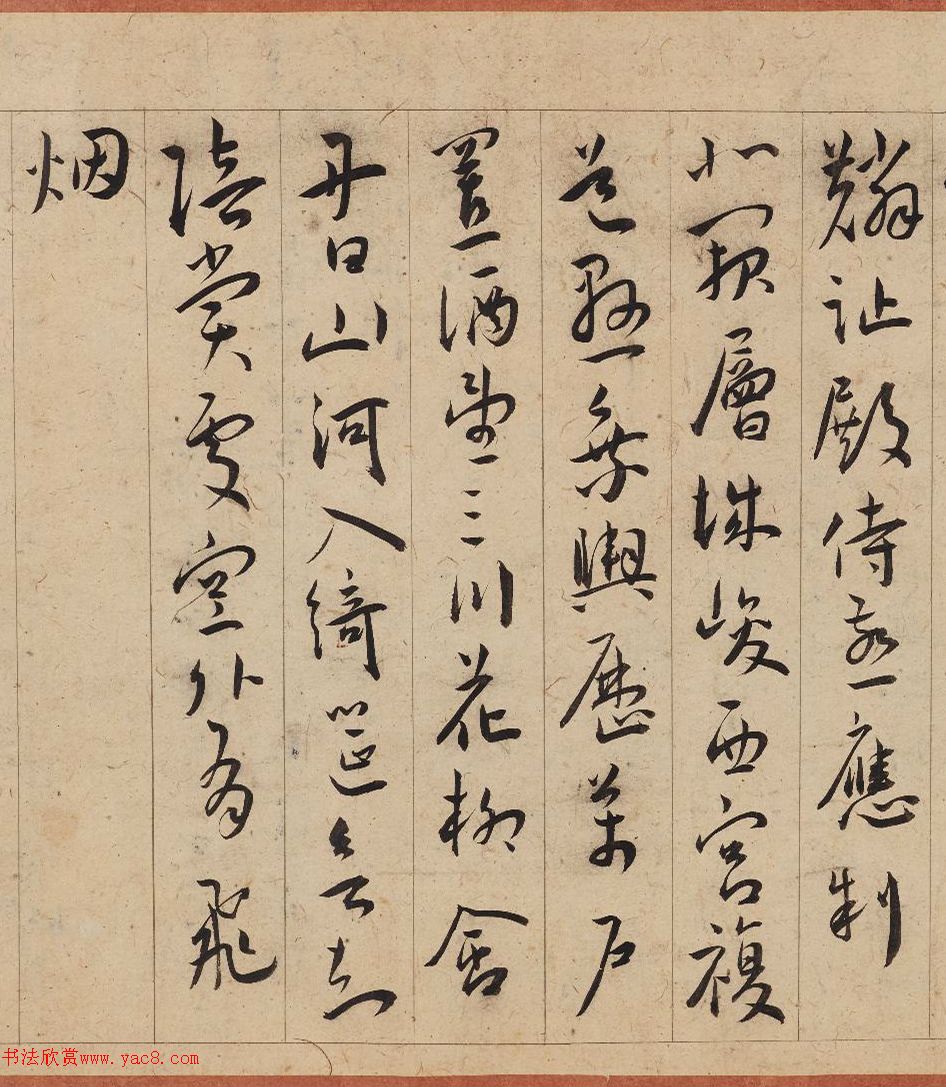 麟趾殿侍宴應制
北闕層城峻西宮複
道懸乘輿歷萬戶
置酒望三川花柳含
丹日山河入綺筵欲知
陪賞處空外有飛
烟
书法欣赏www.yac8.com